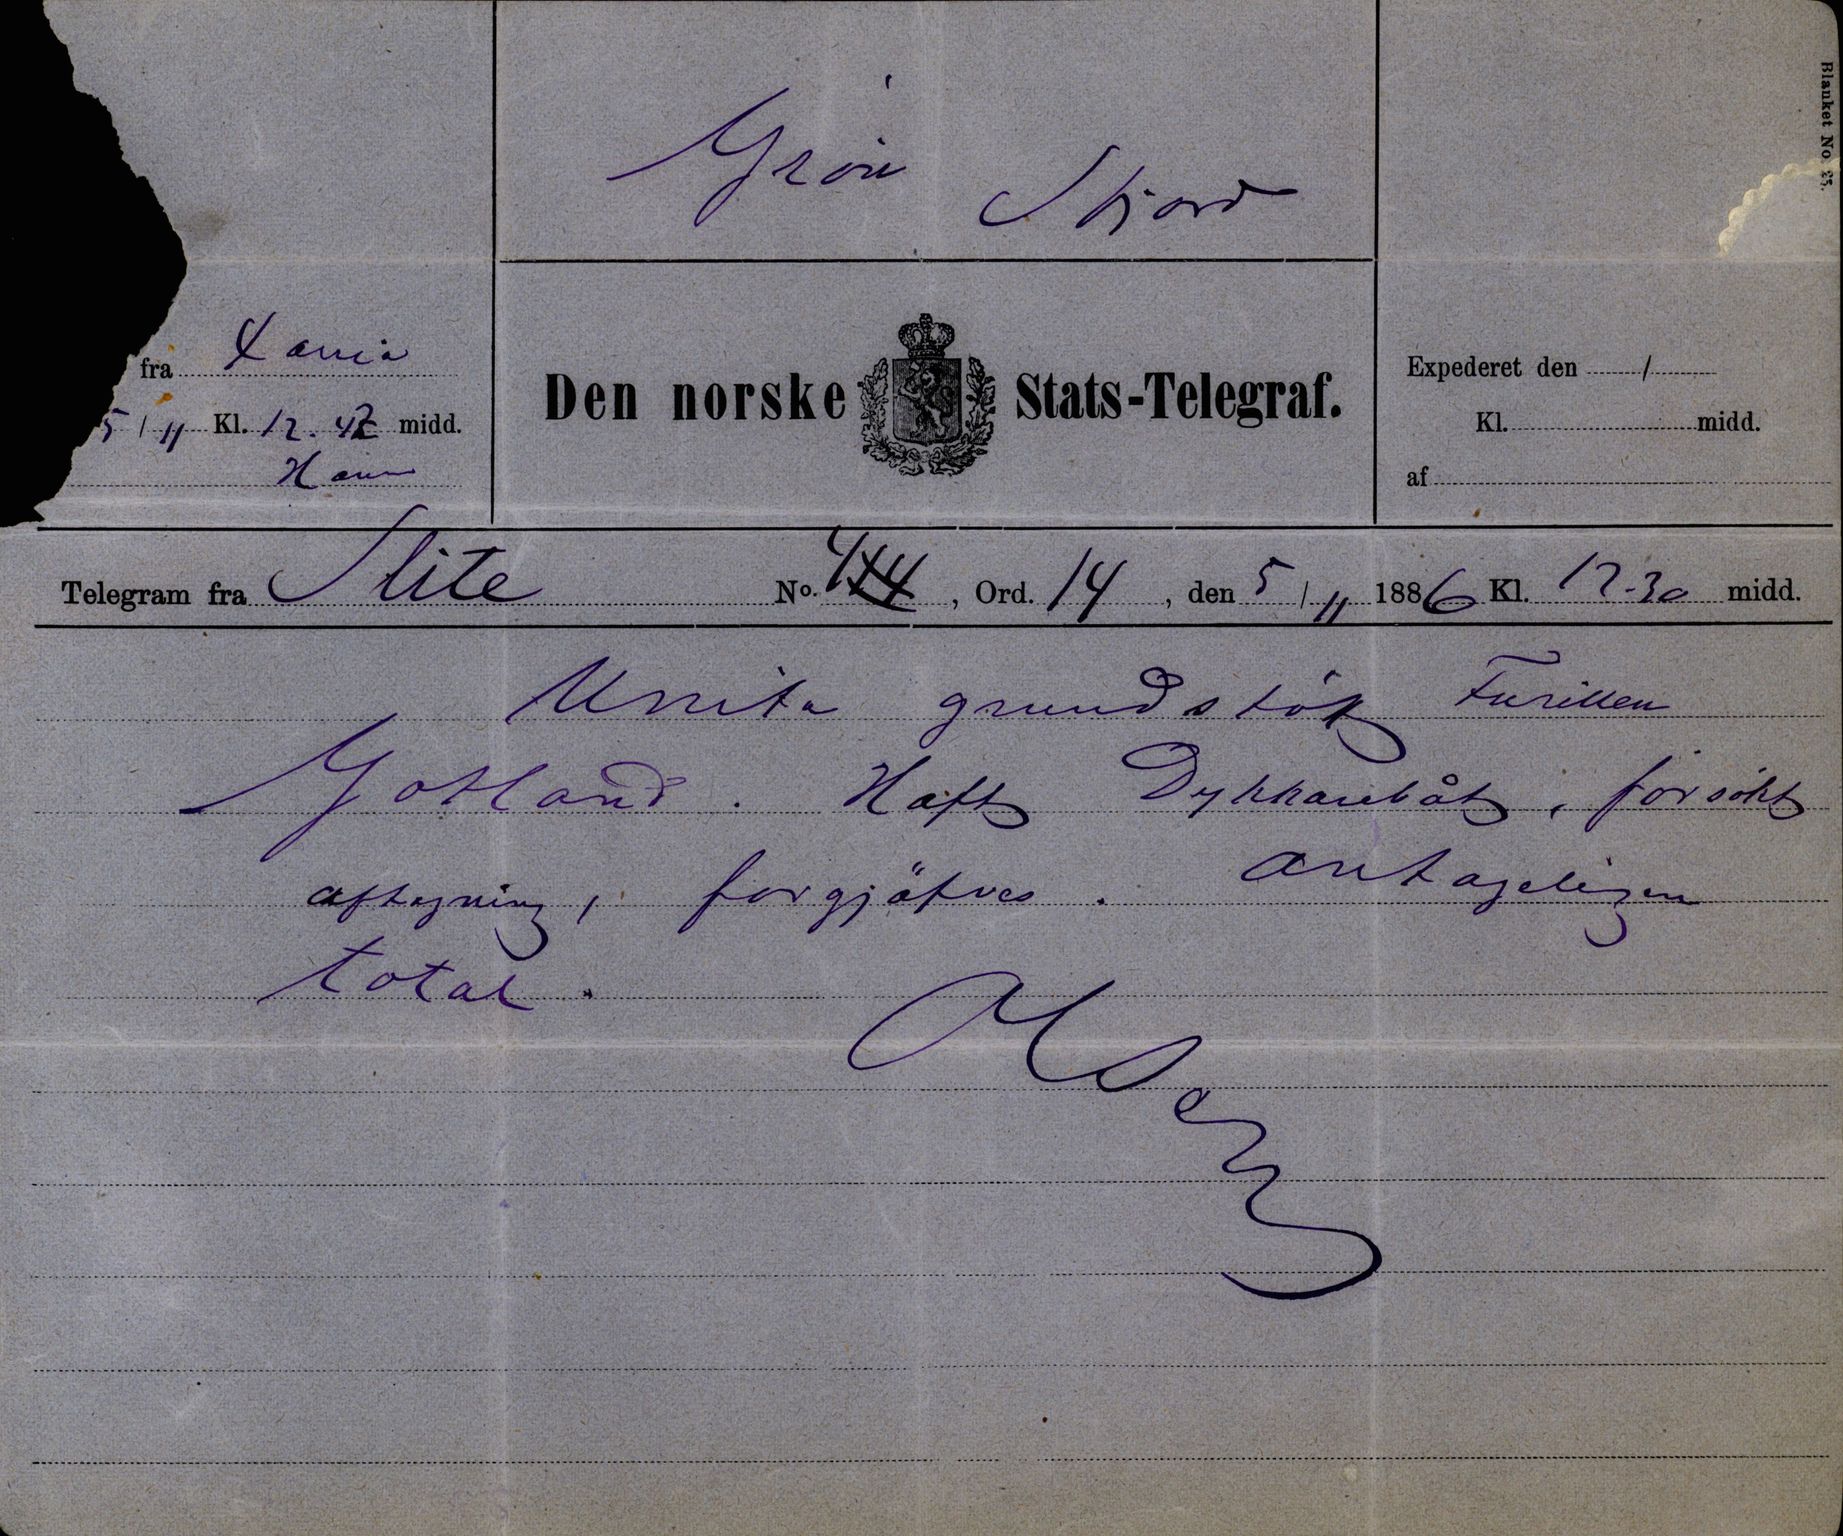 Blanket No 25.
Grön Stjørd
fra Xania
5/11 Kl. 12.47 midd.
Den norske Stats-Telegraf.
Expederet den /
Kl. midd.
af
Telegram fra Slite No. 4, Ord. 14, den 5/11 1886 Kl. 12-30 midd.
Unita grundstök Furillen
Gotland. Haft Dykkarebåt, försökt
aftagning, forgjäfves. antageligen
total.
Olsen